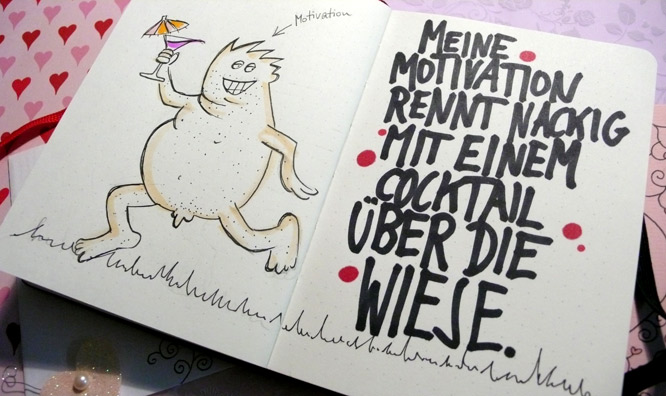 Motivation
MEINE
MOTIVATION
RENNT NACKIG
MIT EINEM
COCKTAIL
ÜBER DIE
WIESE.